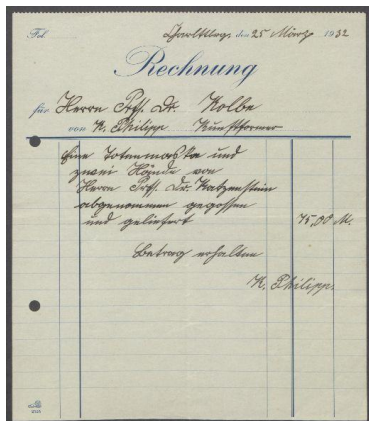 Tel. Charlttbg., den 25 März 1932
Rechnung
für Herrn Prf. Dr. Kolbe
von K. Philipp Kunstformer
Eine Totenmaske und
zwei Hände von
Herrn Prf. Dr. Katzenstein
abgenommen gegossen
und geliefert 75,00 M.
Betrag erhalten
K. Philipp.